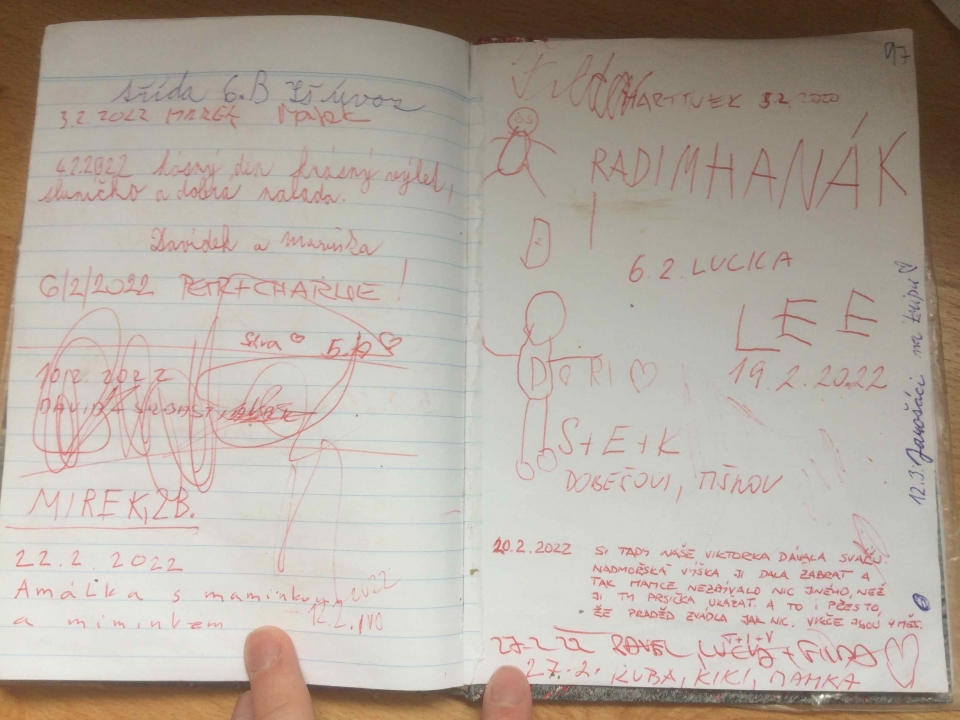 třída 6.B
3.2.2022 MAREK Marek
4.2.2022 krásný den krásný výlet,
sluníčko a dobrá nálada.
Davídek a Maruška
6/2/2022 PETR+CHARLIE!
5.6
10.2.2022
DAVID
MIREK, 2B.
22.2.2022
Amálka s maminkou
a miminkem
2022
12.2. IVO
97
MARTINEK 3.2.2020
RADIMHANÁK
6.2. LUCKA
LEE
19.2.2022
DORI
S+E+K
DOBEŠOVI, TIŠNOV
20.2.2022 SI TADY NAŠE VIKTORKA DÁVALA SVAČU.
NADMOŘSKÁ VÝŠKA JI DALA ZABRAT A
TAK MAMCE NEZBÝVALO NIC JINÉHO, NEŽ
JI TY PRSÍČKA UKÁZAT. A TO I PŘESTO,
ŽE PRADĚD ZVÁDLA JAK NIC. VIKČE JSOU 4 MĚS.
T+I+V
27.2.22 PAVEL, LUCIA + FILIP
27.2. KUBA, KIKI, MAMKA
12.3. Janošáci na tripu